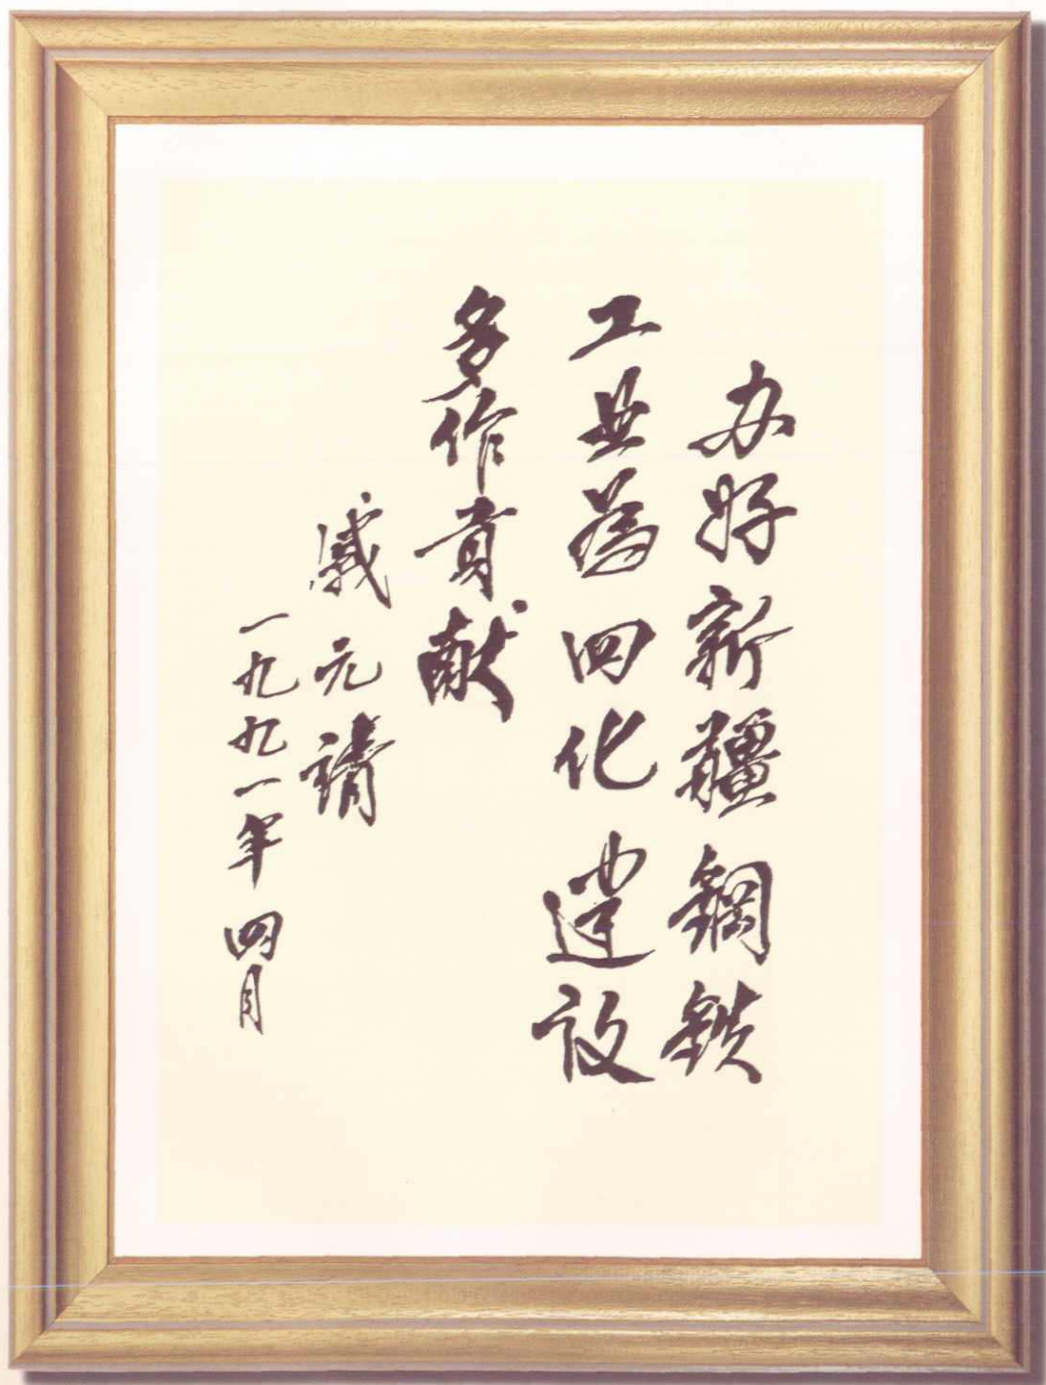 办好新疆鋼鉄
工业為四化建設
多作貢献
戚元靖
一九九一年四月